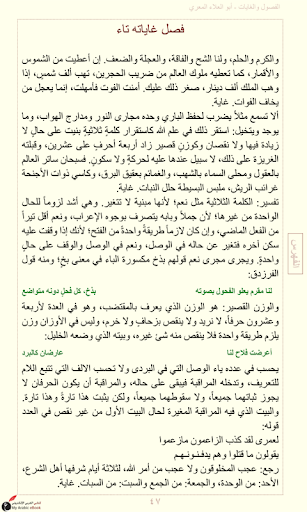 الفصول والغايات - أبو العلاء المعري
فصل غاياته تاء
والكرم والحلم، ولنا الشح والفاقة، والعجلة والضعف. إن أعطيت من الشموس
والأقمار، كما تعطيه ملوك العالم من ضريب الحجرين، تهب ألف شمس، إذا
وهب الملك ألف دينار، صغر ذلك عليك. أمنت القوت فأمهلت، إنما يعجل من
يخاف الفوات. غاية.
ألا تسمع مثلاً يضرب لحفظ الباري وحده مجارى النور ومدارج الهواب، وما
يوجد ويتخيل: استقر ذلك في علم الله كاستقرار كلمةٍ ثلاثيةٍ بنيت على حالٍ لا
زيادة فيها ولا نقصان وكوزنٍ قصيرٍ زاد أربعة أحرفٍ على عشرين، وقبلته
الغريزة على ذلك، لا سبيل عندها عليه لحركةٍ ولا سكونٍ. فسبحان ساتر العالم
بالعقول ومحلى السماء بالشهب، والغمائم بعقيق البرق، وكاسي ذوات الأجنحة
غرائب الريش، وملبس البسيطة حلل النبات. غاية.
تفسير: الكلمة الثلاثية مثل نعم؛ لأنها مبنية لا تتغير. وهي أشد لزوماً للحال
الواحدة من غيرها؛ لأن جملاً وبابه يتصرف بوجوه الإعراب، ونعم أقل تيراً
من الفعل الماضي، وإن كان لازماً طريقةً واحدةً من الفتح؛ لأنك إذا وقفت عليه
سكن آخره فتغير عن حاله في الوصل، ونعم في الوصل والوقف على حالٍ
واحدةٍ. ويجرى مجرى نعم قولهم بذخ مكسورة الباء في معنى بخ؛ ومنه قول
الفرزدق:
لنا مقرم يعلو الفحول بصوته
بذخ، كل فحلٍ دونه متواضع
والوزن القصير: هو الوزن الذي يعرف بالمقتضب، وهو في العدة لأربعة
وعشرون حرفاً، لا نريد ولا ينقص بزحاف ولا خرم، وليس في الأوزان وزن
يلزم طريقة واحدة فلا ينقص منه شئ غيره، وبيته الذي وضعه الخليل:
أعرضت فلاح لنا
عارضان كالبرد
يحسب في عدده ياء الوصل التي في البردى ولا تحسب الالف التي تتبع اللام
للتعريف، وتدخله المراقبة فيبقى على حاله، والمراقبة أن يكون الحرفان لا
يجوز ثباتهما جميعاً، ولا سقوطهما جميعاً، ولكن يثبت هذا تارةً وهذا تارة.
والبيت الذي فيه المراقبة المغيرة لحال البيت الأول من غير نقص في العدد
قوله:
لعمرى لقد كذب الزاعمون مازعموا
يقولون ما قتلوا وهم يدفـنـونـهـم
رجع: عجب المخلوقون ولا عجب من أمر الله، لثلاثة أيام شرفها أهل الشرع،
الأحد: من الوحدة، والجمعة: من الجمع والسبت: من السبات. غاية.
الفهرس
٤٧
My Arabic eBook